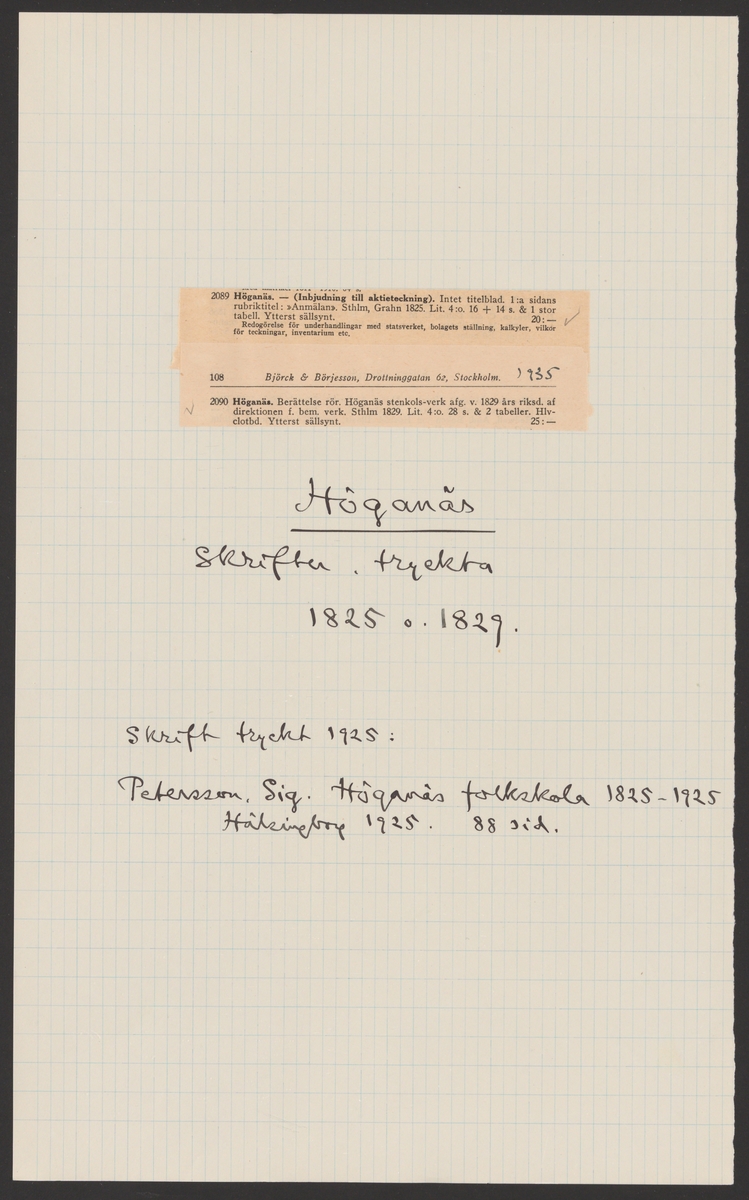 2089 Höganäs. — (Inbjudning till aktieteckning). Intet titelblad. 1:a sidans
rubriktitel: »Anmälan». Sthlm, Grahn 1825. Lit. 4:o. 16 + 14 s. & 1 stor
tabell. Ytterst sällsynt. 20:—
Redogörelse för underhandlingar med statsverket, bolagets ställning, kalkyler, vilkor
för teckningar, inventarium etc.
108 Björck & Börjesson, Drottninggatan 62, Stockholm. 1935
2090 Höganäs. Berättelse rör. Höganäs stenkols-verk afg. v. 1829 års riksd. af
direktionen f. bem. verk. Sthlm 1829. Lit. 4:o. 28 s. & 2 tabeller. Hlv-
clotbd. Ytterst sällsynt. 25:—
Höganäs
Skrifter, tryckta
1825 o. 1829.
Skrift tryckt 1925:
Petersson, Sig. Höganäs folkskola 1825-1925
Hälsingborg 1925. 88 sid.